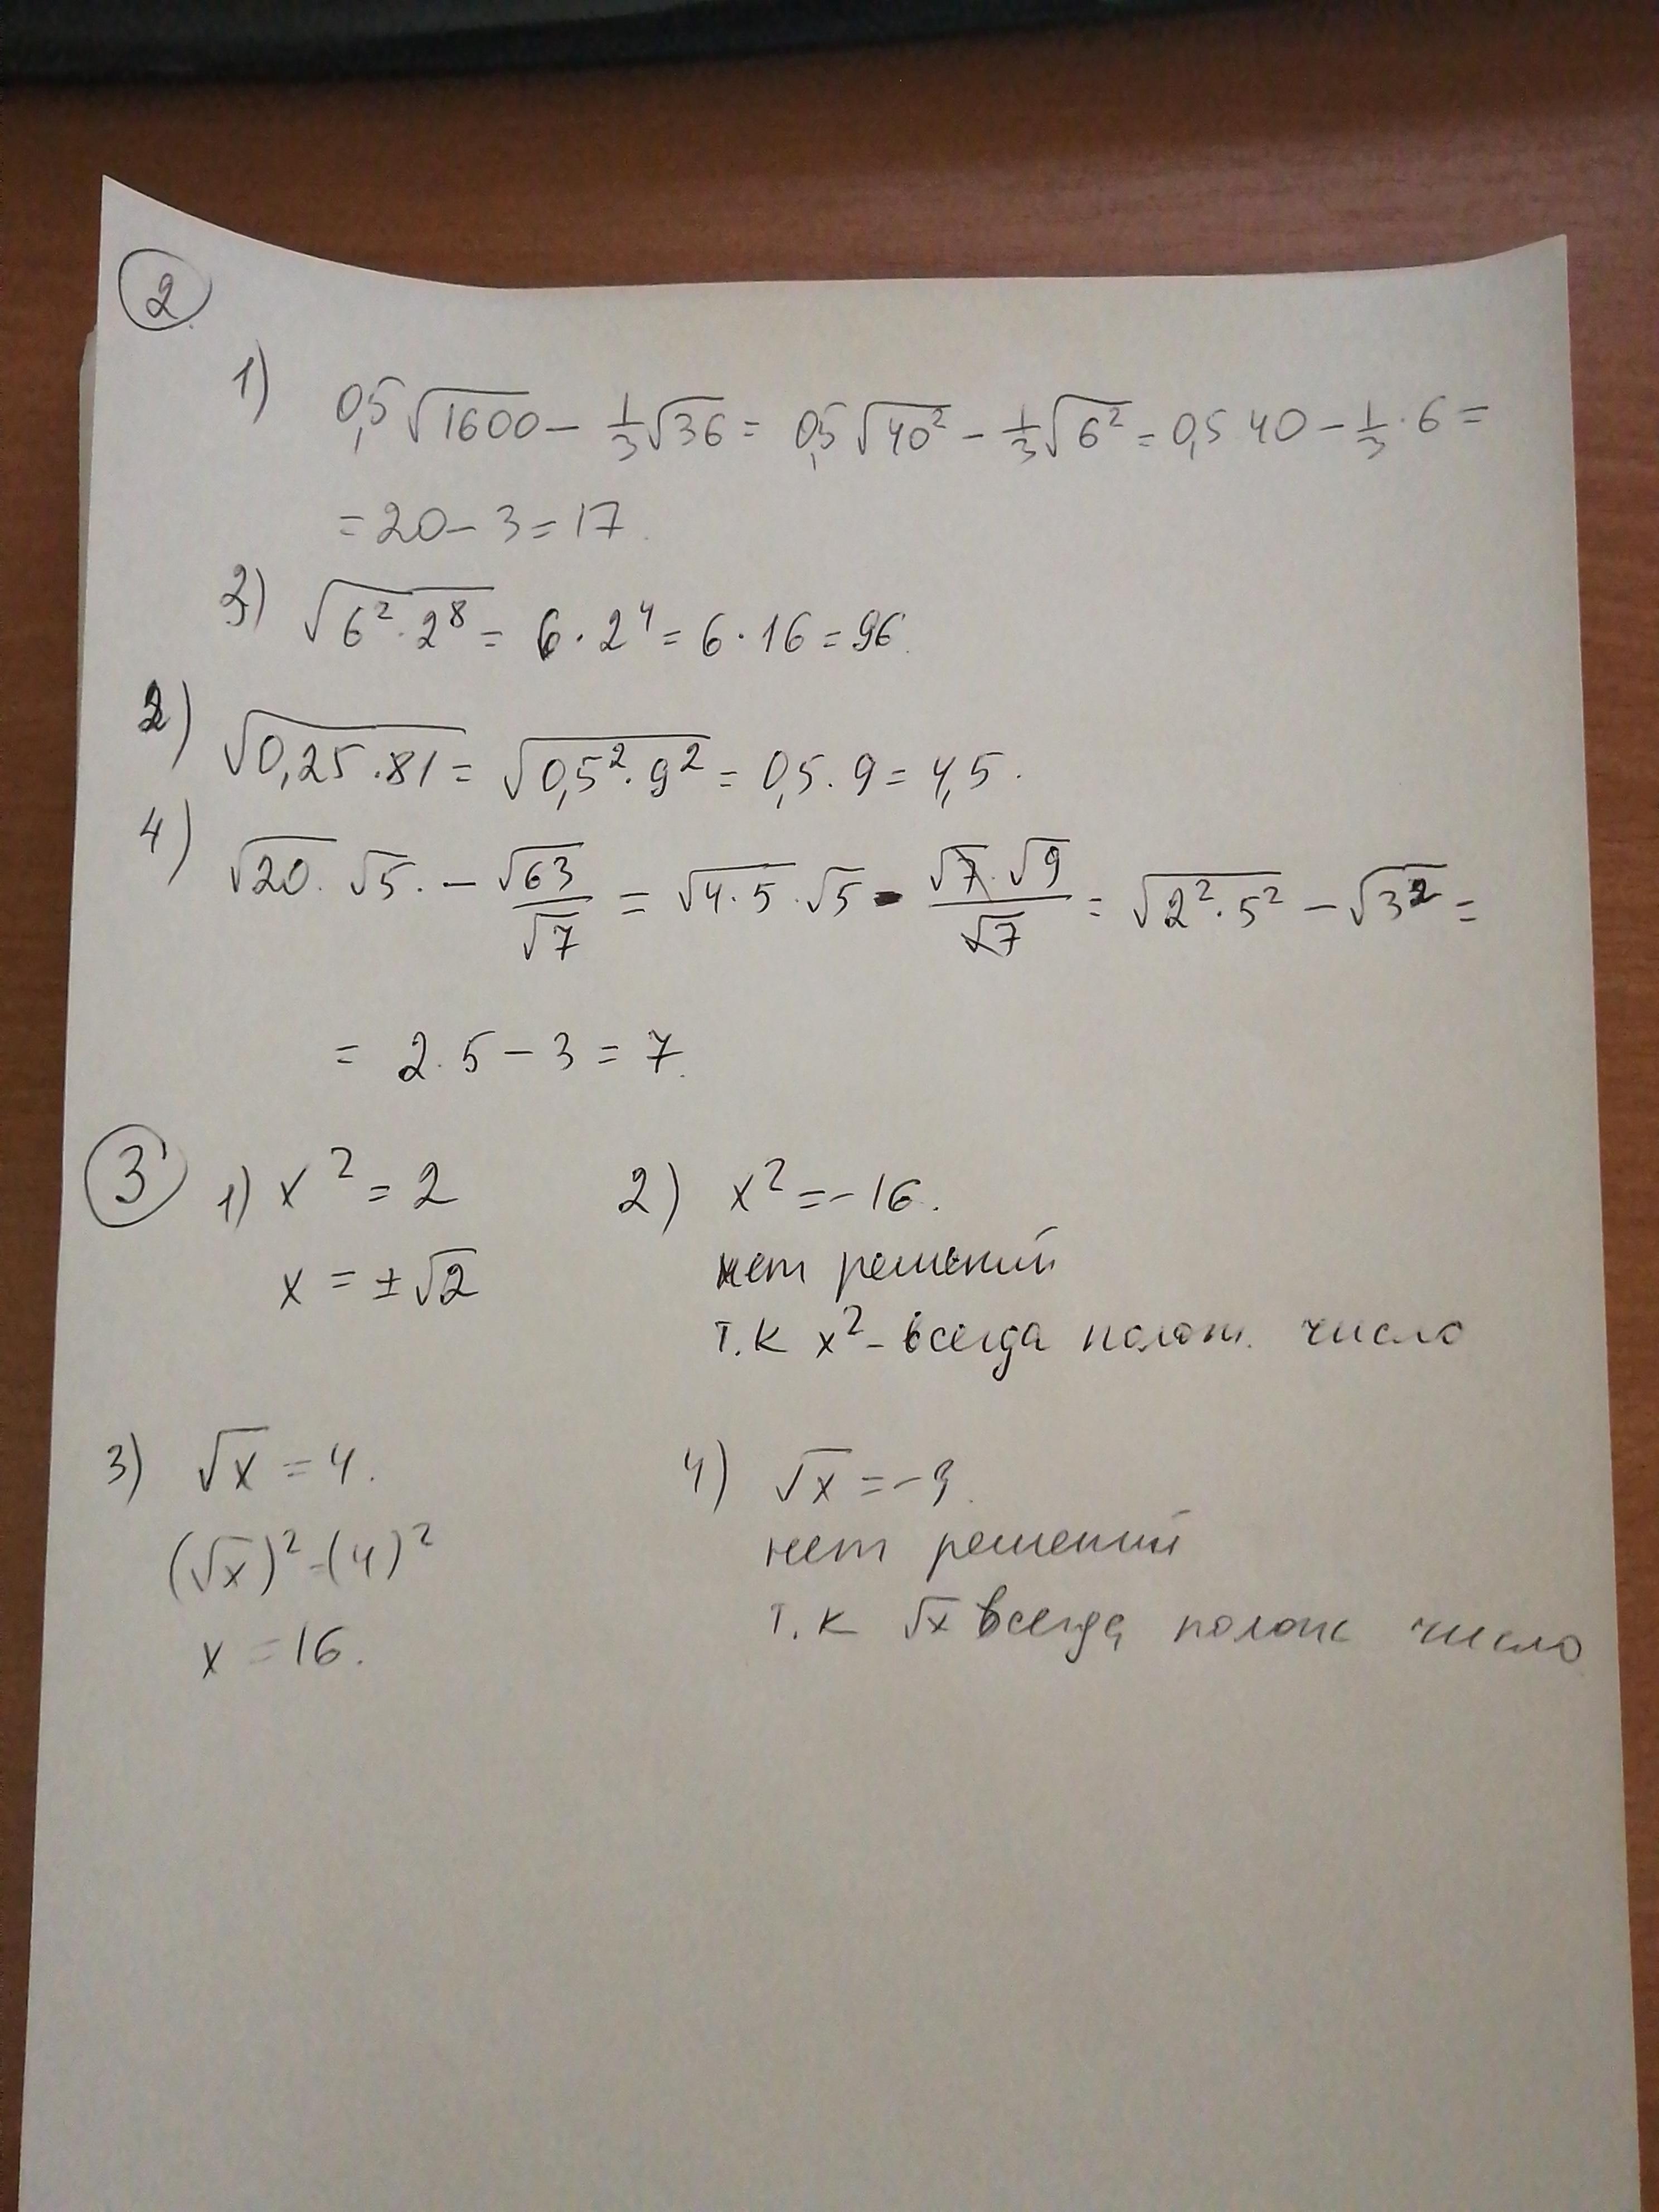 2
1)
0,5√1600 - 1/3√36 = 0,5√40² - 1/3√6² = 0,5 40 - 1/3 · 6 =
= 20 - 3 = 17.
3) √6² · 2⁸ = 6 · 2⁴ = 6 · 16 = 96.
2) √0,25 · 81 = √0,5² · 9² = 0,5 · 9 = 4,5.
4) √20 · √5 · - √63/√7 = √4 · 5 · √5 - √7 · √9/√7 = √2² · 5² - √3² =
= 2 · 5 - 3 = 7.
3 1) x² = 2 2) x² = -16.
x = ±√2 нет решений
т.к x² - всегда полож. число
3) √x = 4. 4) √x = -9.
(√x)² = (4)² нет решений
x = 16. т.к √x всегда полож число